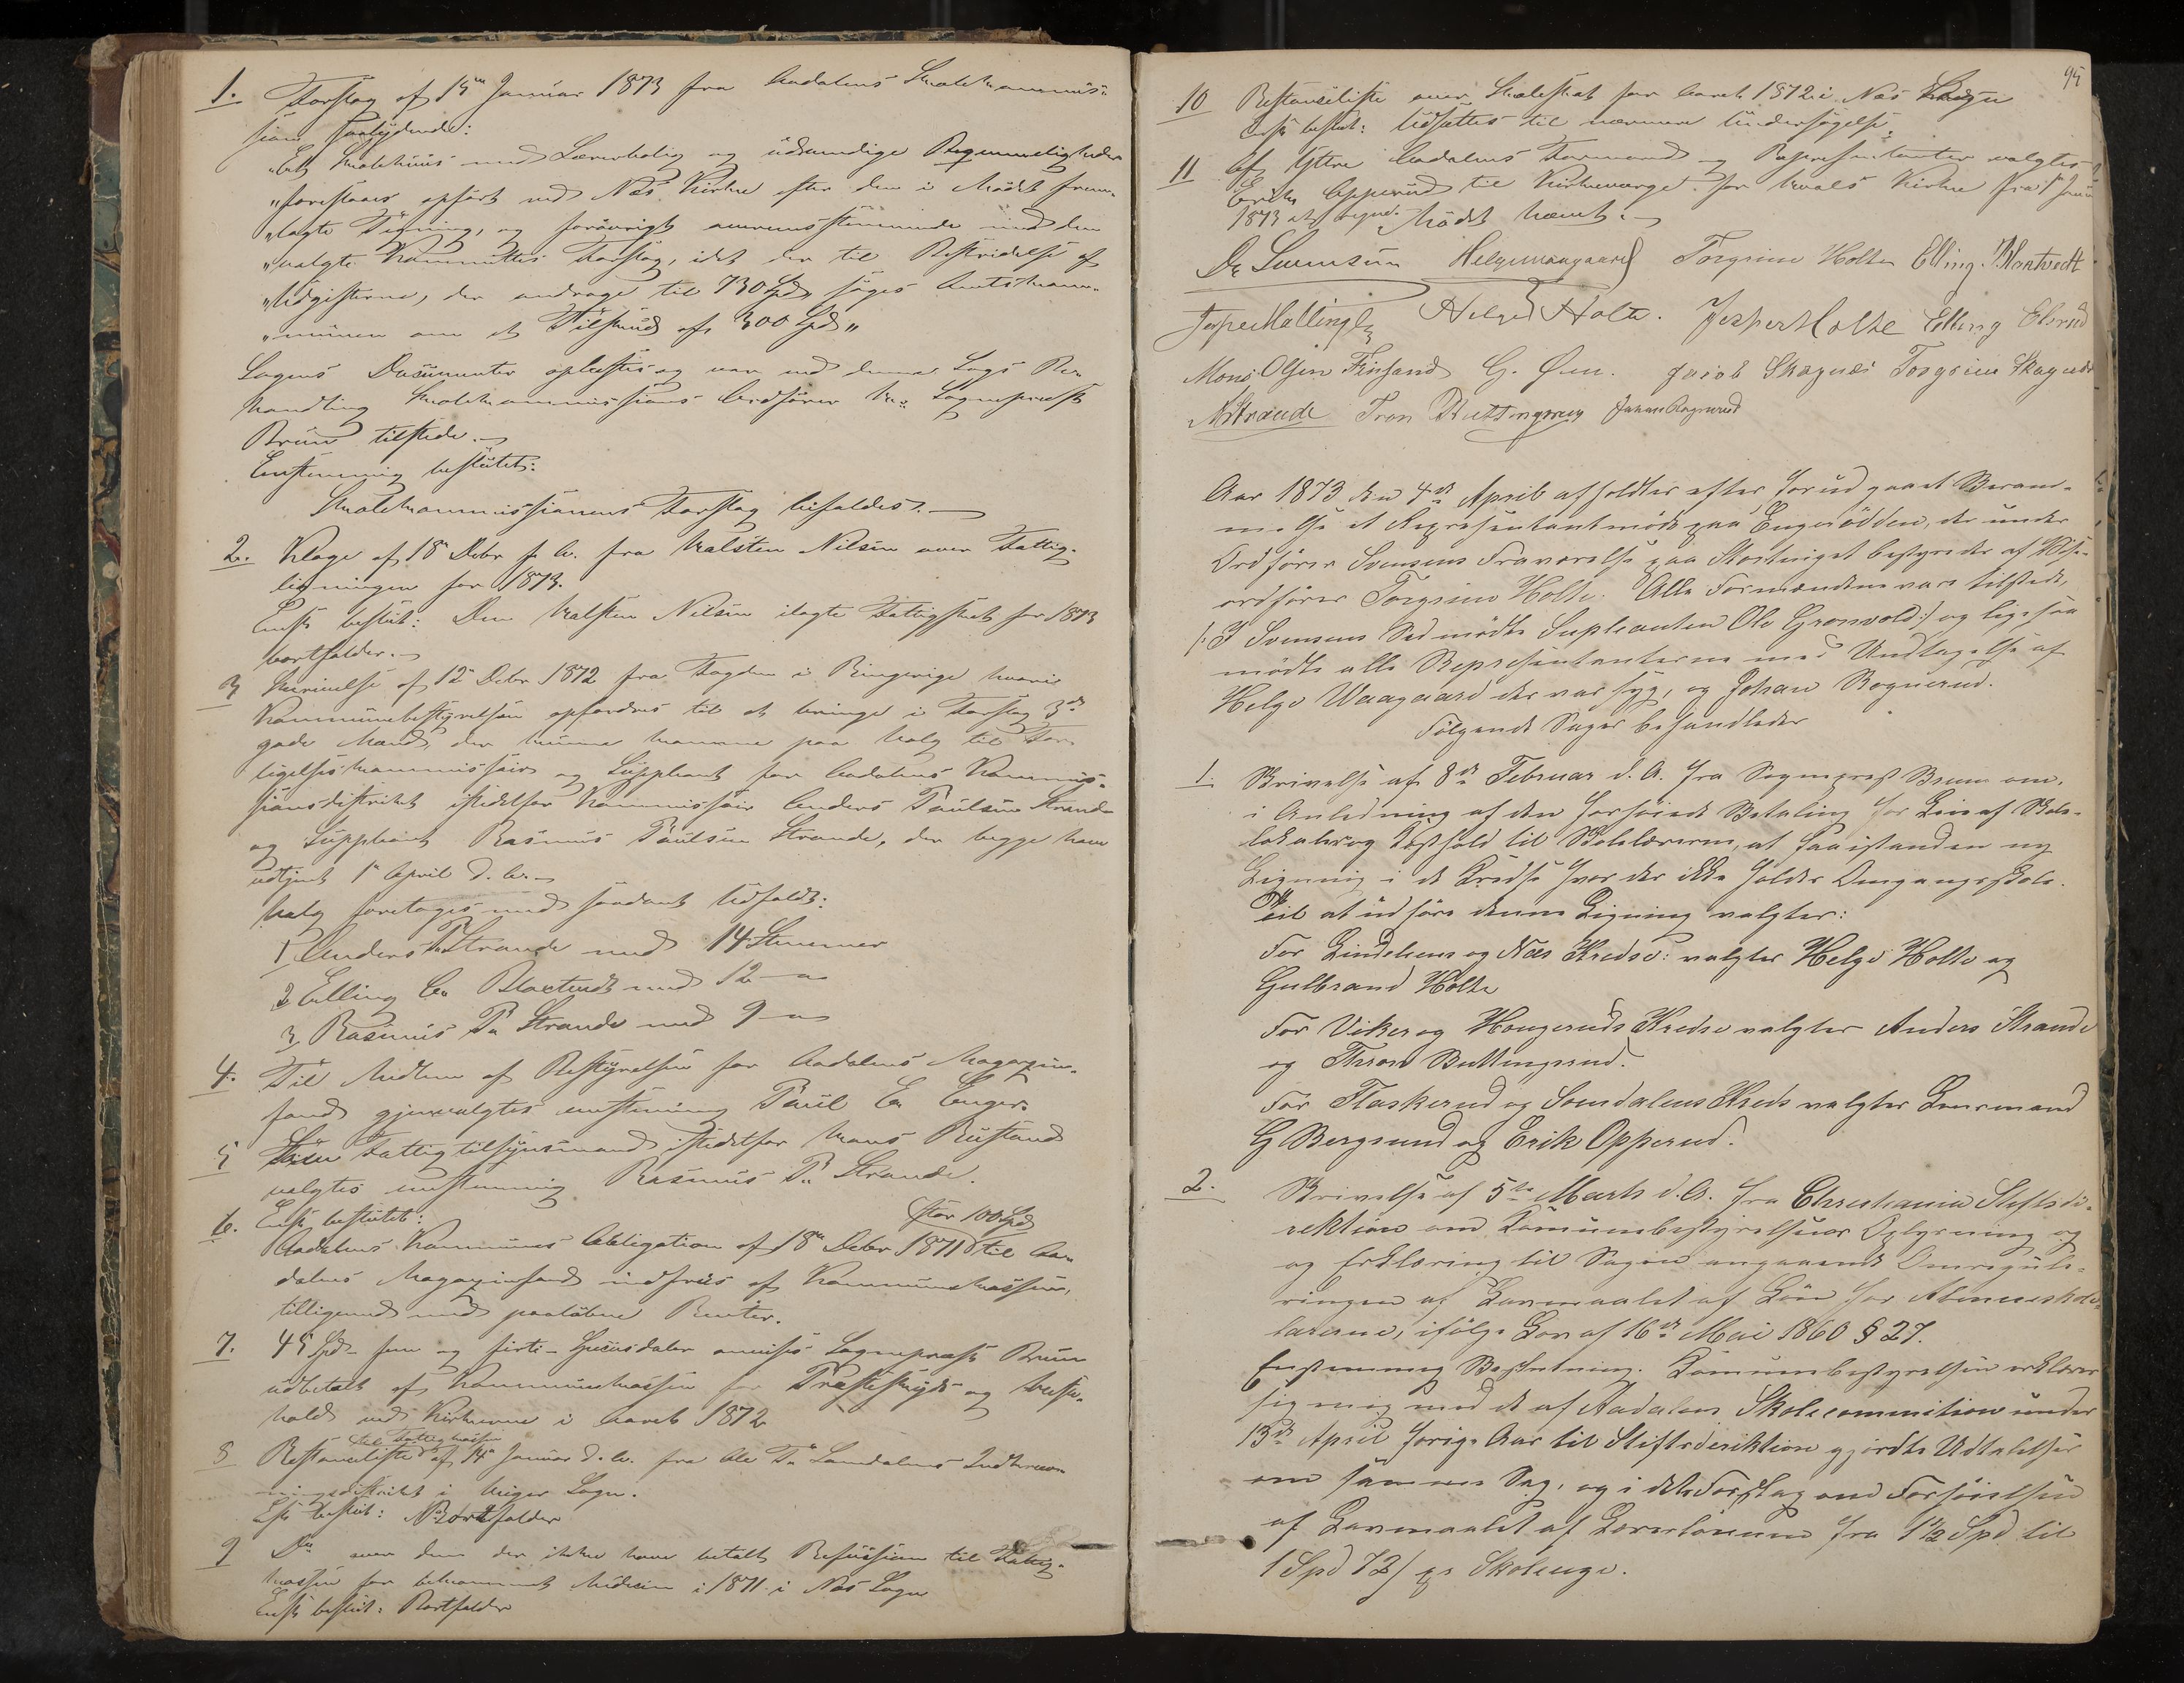 1. Forslag af 15de Januar 1873 fra Aadalens Skolekommis-
sion saalydende:
"Et Skolehuus med Lærerbolig og udvendige Bequemmeligheder
"foreslaaes opført ved Næs Kirke efter den i Mødet frem-
"lagte Tegning, og forøvrigt overensstemmende med den
"valgte Kommittes Forslag, idet der til Bestridelse af
"Udgifterne, der andrage til 730 Spd, søges Amtskom-
"munen om et Tilskud af 300 Spd"
Sagens Documenter oplæstes og var ved denne Sags Be-
handling Skolekommissionens Ordfører Hr. Sognepræst
Bruun tilstede.
Enstemmig besluttet:
Skolekommissionens Forslag bifaldes.
2. Klage af 18 Debr f. A. fra Halsten Nilsen over Fattig-
ligningen for 1873.
Enst. beslut: Den Halsten Nilsen ilagte Fattigskat for 1873
bortfalder.
3 Skrivelse af 12te Debr 1872 fra Fogden i Ringerige hvori
Kommunebestyrelsen opfordres til at bringe i Forslag 3de
gode Mænd, der kunne komme paa Valg til For-
ligelseskommissair og Suppleant for Aadalens Kommis-
sionsdistrikt istedetfor Kommissair Anders Paulsen Strande
og Suppleant Rasmus Paulsen Strande, der begge have
udtjent 1te April d. A.
Valg foretoges med saadant Udfald:
1 Anders P. Strande med 14 Stemmer
2 Elling A. Blaktvedt med 12 —
3 Rasmus P. Strande med 9 —
4. Til Medlem af Bestyrelsen for Aadalens Magazin-
fond gjenvalgtes enstemmig Paul E. Enger.
5 Som Fattigtilsynsmand istedetfor Hans Bustand
valgtes enstemmig Rasmus P. Strande.
6. Enst. besluttet:
stor 100 Spd
Aadalens Kommunes Obligation af 18de Debr 1871 til Aa-
dalens Magazinfond indfries af Kommunekassen,
tilligemed paaløbne Renter.
7. 45 Spd – fem og firti – Speciesdaler anvises Sognepræst Bruun
udbetalt af Kommunekassen for Præsteskyds og
hold ved Kirkerne i Aaret 1872
8 Restanceliste til Fattigkassen af 14de Januar d. A. fra Ole T. Somdalens Indkræv-
ningsdistrikt i Viger Sogn.
Enst. beslut: Bortfalder
9 Do over dem der ikke have betalt Refusion til Fattig-
kassen for bekommet Medicin i 1871 i Næs Sogn
Enst. beslut: Bortfalder
95
10 Restanceliste over Skoleskat for Aaret 1872 i Næs Sogn
Enst. beslut: Udsættes til nærmere Undersøgelse.
11 Af Ytre Aadalens Formænd og Repræsentanter valgtes
Erik Opperud til Kirkeværge for Hvals Kirke fra 1te Jan
1873 at regne. Mødet hævet.
O. Svensen Helge Waagaard Torgrim Holte Elling Blaktvedt
Jesper Halling Helge Holte. Jesper Holte Elling Elsrud
Mons Olsen Finsand G. Øen. Jacob Skagnæs Torgrim Skagnæs
A Strande Tron Buttingsrud Johan Rognerud
Aar 1873 den 4de April afholdtes efter forudgaaet Beram-
melse et Repræsentantmøde paa Engerodden, der under
Ordfører Svensens Fraværelse paa Storthinget bestyredes af Vise-
ordfører Torgrim Holte. Alle Formændene vare tilstede,
/: I Svensens Sted mødte Supleanten Ole Gronvold:/ og ligesaa
mødte alle Repræsentanterne med Undtagelse af
Helge Waagaard der var syg, og Johan Rognerud.
Følgende Sager behandledes
1. Skrivelse af 8de Februar d. A. fra Sognepræst Bruun om,
i Anledning af den forhøiede Betaling for Leie af Skole-
lokaler og Kosthold til Skolelærerne, at faa istand en ny
Ligning i de Kredse hvor der ikke holdes Omgangsskole.
Til at udføre denne Ligning valgtes:
For Lindelien og Næs Kredse: valgtes Helge Holte og
Gulbrand Holte
For Viker og Hougeruds Kredse valgtes Anders Strande
og Thron Buttingsrud.
For Flaskerud og Somdalens Kreds valgtes Lensmand
G Bergsund og Erik Opperud.
2. Skrivelse af 5te Marts d. A. fra Christiania Stiftsdi-
rektion om Komunebestyrelsens Oplysning og
og Erklæring til Sagen angaaende Omregule-
ringen af Lavmaalet af Løn for Almueskole-
lærerne, ifølge Lov af 16de Mai 1860 § 27.
Enstemmig Beslutning. Komunebestyrelsen erklærer
sig enig med det af Aadalens Skolecommition under
13de April forrige Aar til Stiftsderiktion gjordte Udtalelser
om samme Sag, og i dets Forslag om Forhøielsen
af Lavmaalet af Lærerlønnen fra 1 1/2 Spd til
1 Spd 72 / pr Skoleuge.